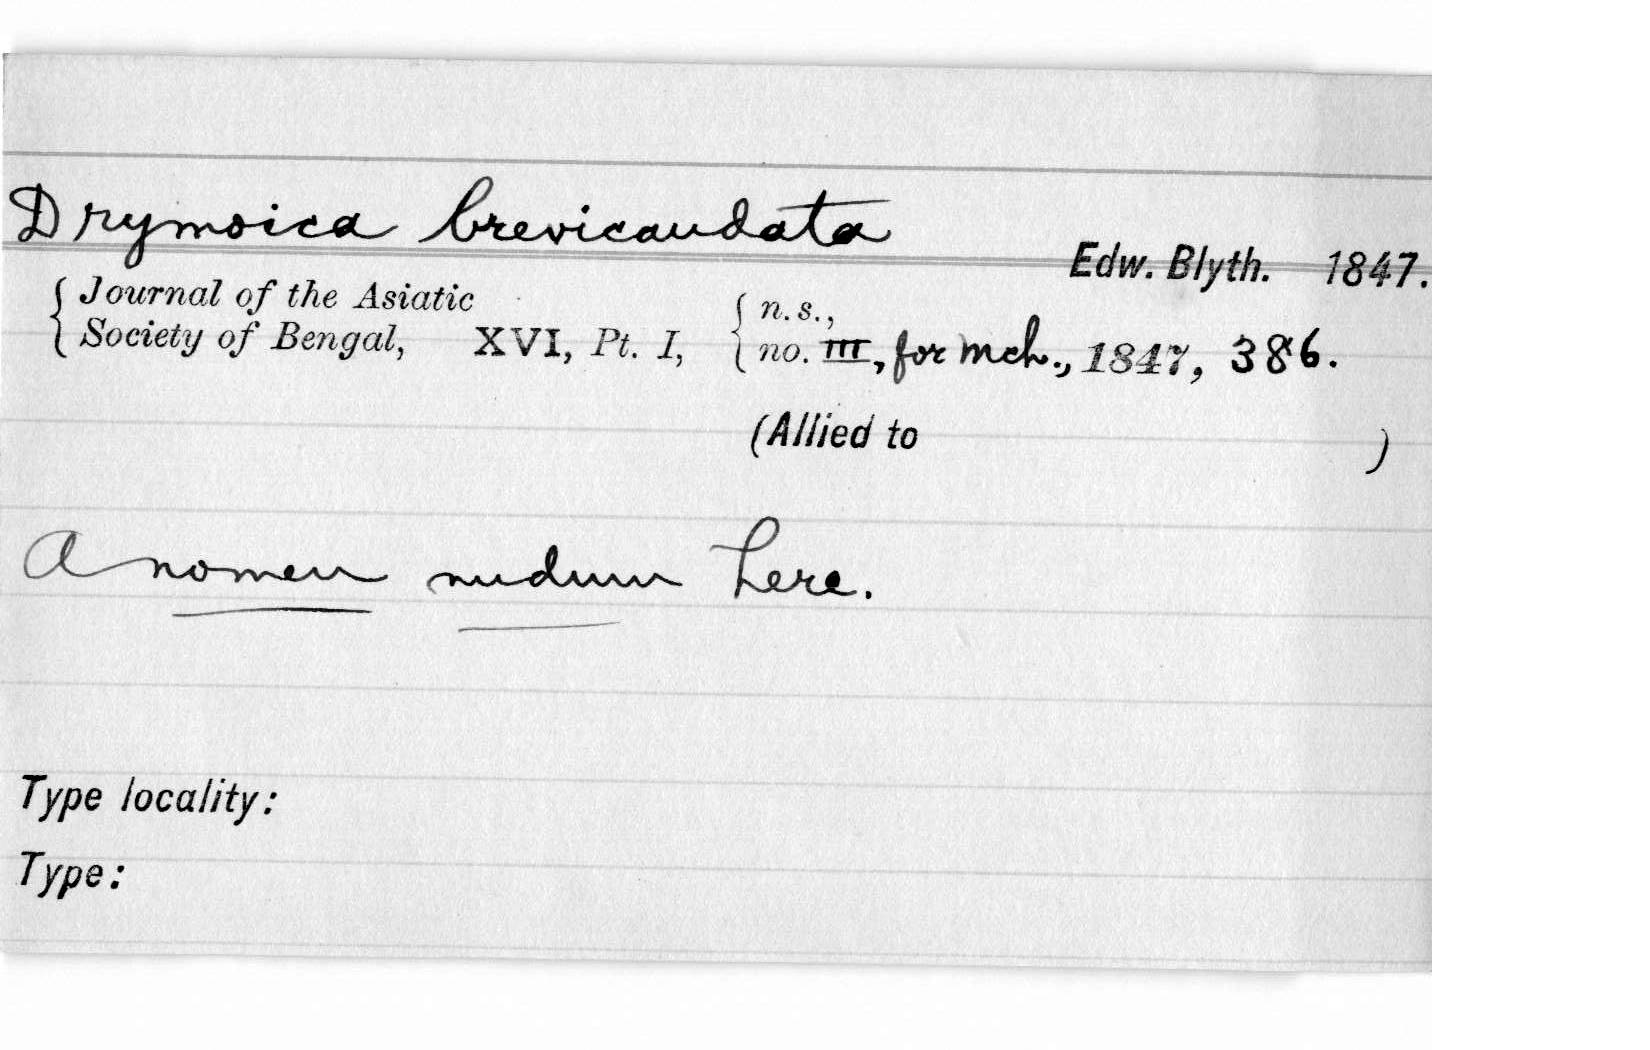 Drymoica brevicaudata
Edw. Blyth. 1847.
{ Journal of the Asiatic { n.s.,
Society of Bengal, XVI, Pt. I, no. III, for Mch., 1847, 386.
(Allied to )
A nomen nudum here.
Type locality:
Type: